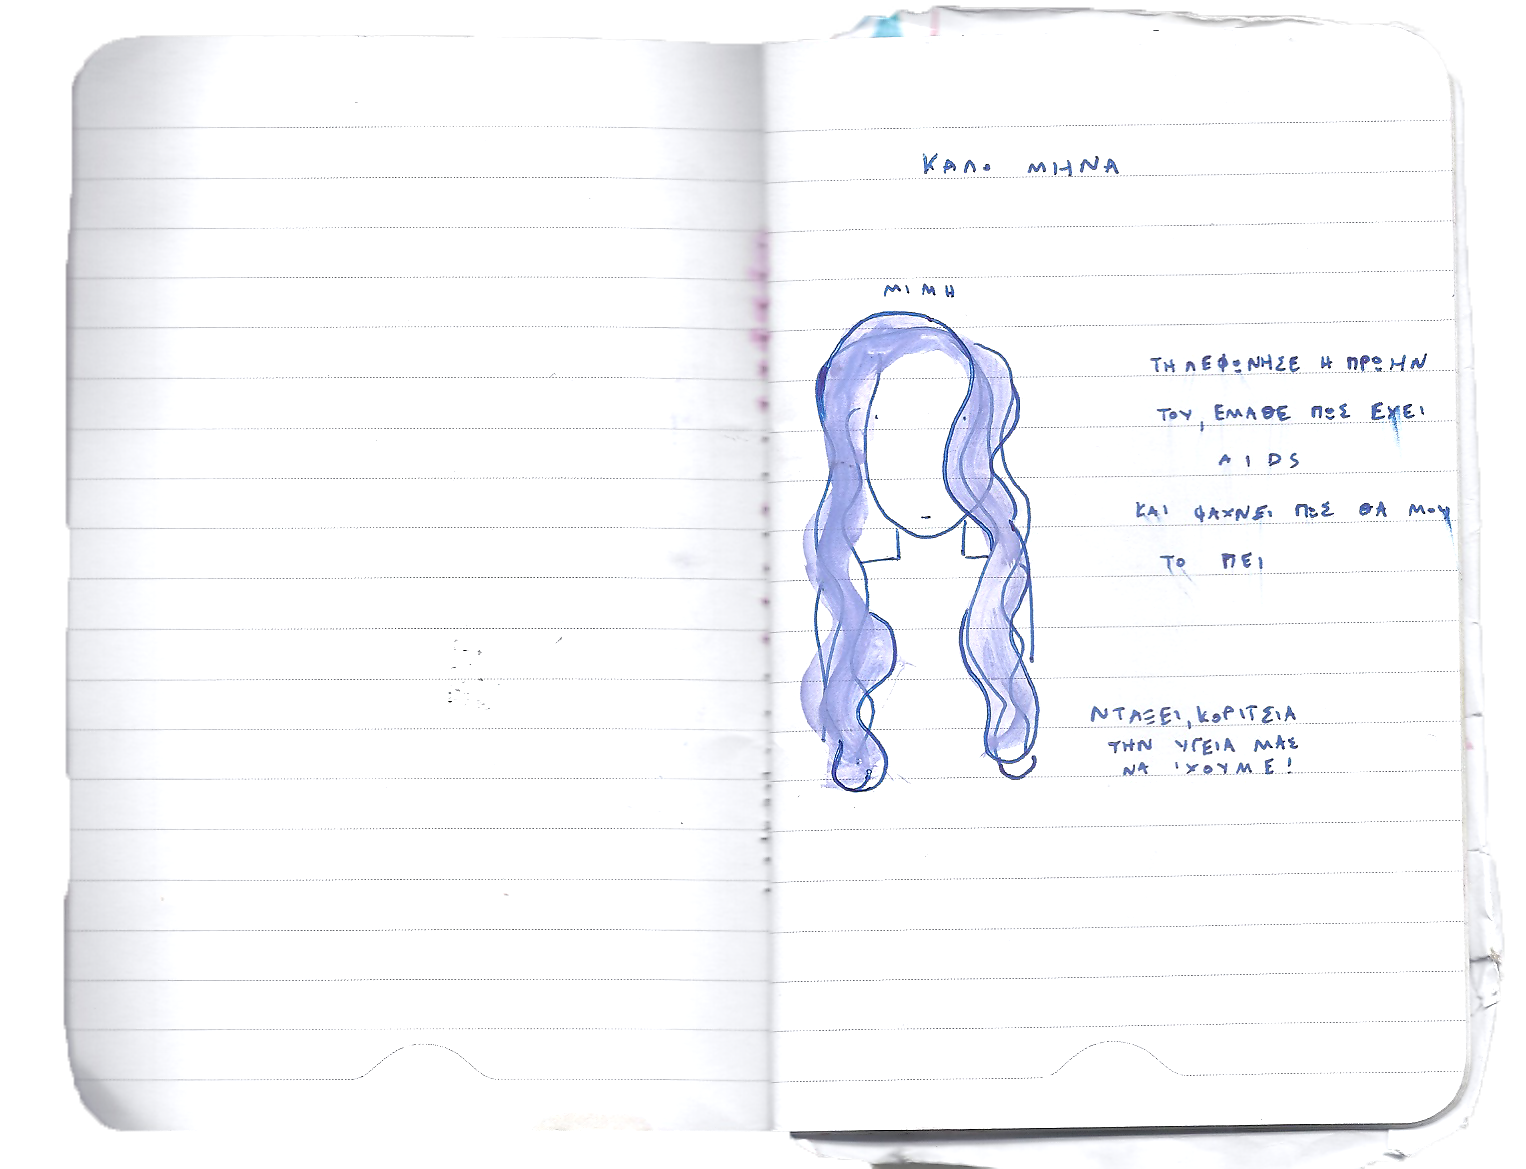 ΚΑΛΟ ΜΗΝΑ
ΜΙΜΗ
ΤΗΛΕΦΩΝΗΣΕ Η ΠΡΩΗΝ
ΤΟΥ, ΕΜΑΘΕ ΠΩΣ ΕΧΕΙ
AIDS
ΚΑΙ ΨΑΧΝΕΙ ΠΩΣ ΘΑ ΜΟΥ
ΤΟ ΠΕΙ
ΝΤΑΞΕΙ, ΚΟΡΙΤΣΙΑ
ΤΗΝ ΥΓΕΙΑ ΜΑΣ
ΝΑ 'ΧΟΥΜΕ!